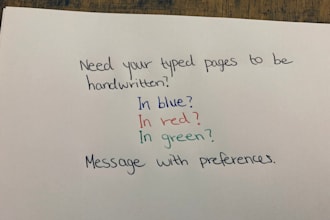 Need your typed pages to be
handwritten?
In blue?
In red?
In green?
Message with preferences.